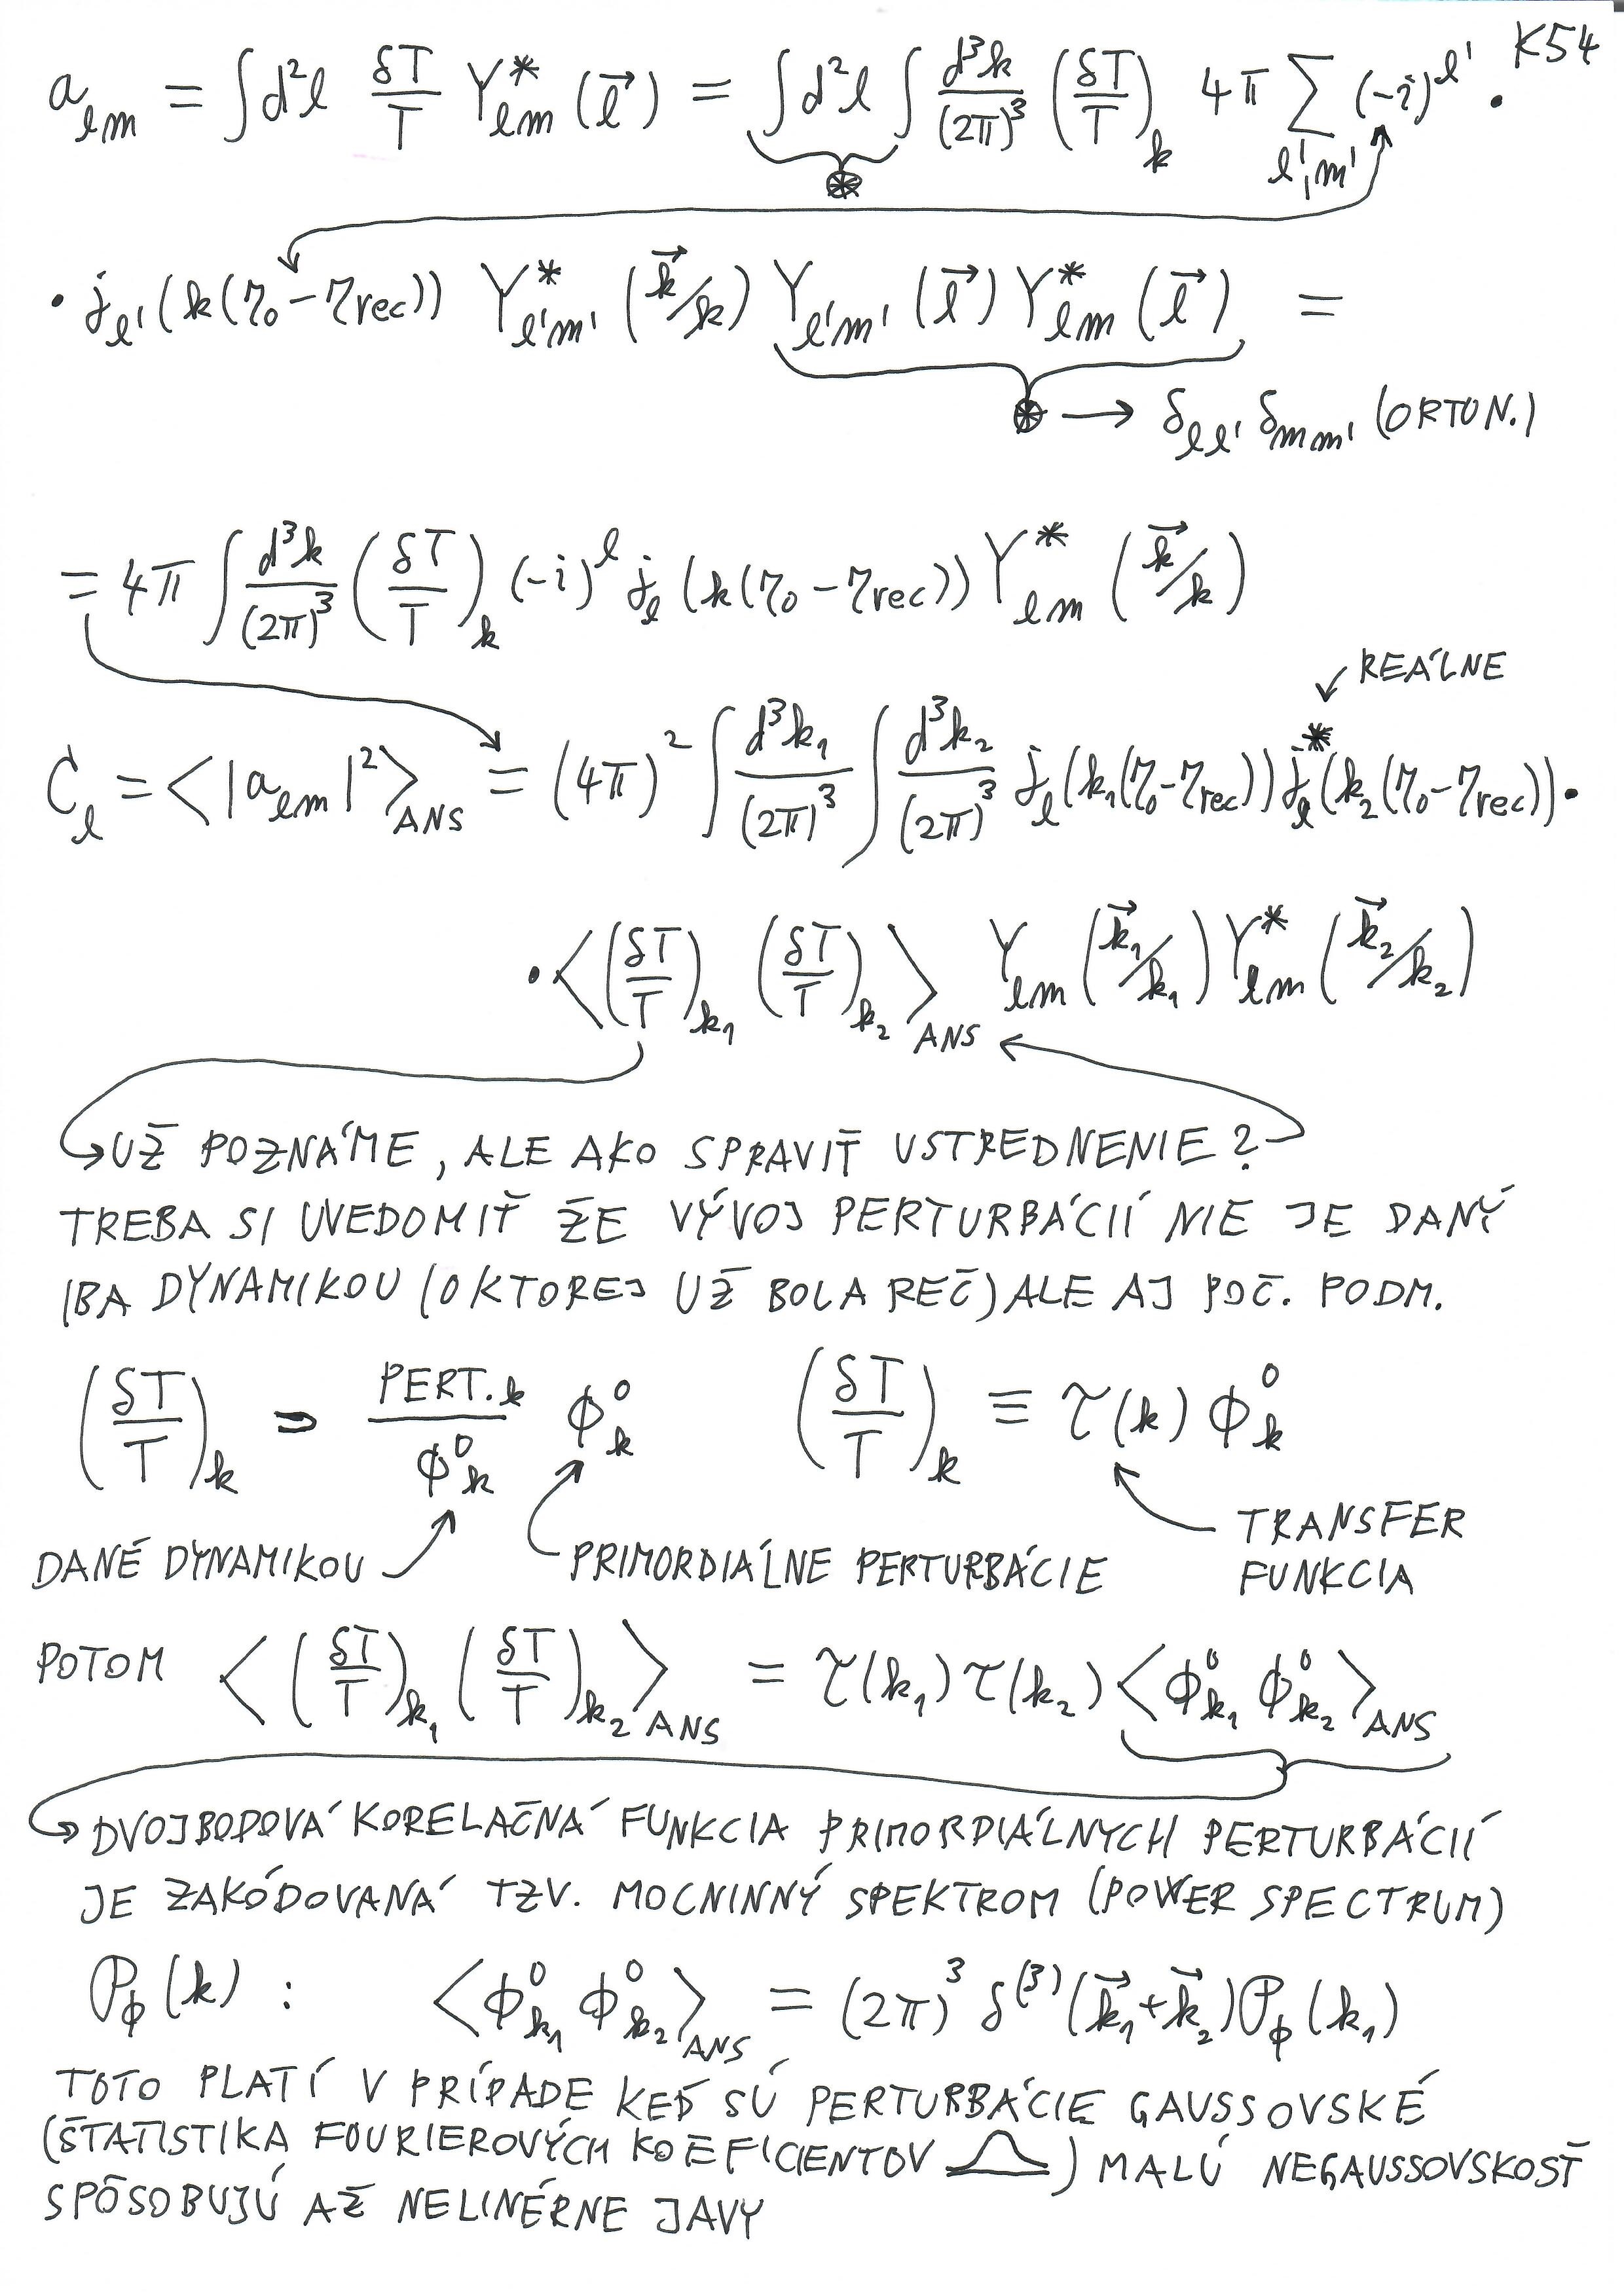 K54
a_{lm} = ∫d²l δT/T Y*_{lm}(l⃗) = ∫d²l ∫ d³k/(2π)³ (δT/T)_k 4π ∑_{l',m'} (-i)^{l'} ·
⊛
· j_{l'}(k(η₀-η_{rec})) Y*_{l'm'}(k⃗/k) Y_{l'm'}(l⃗) Y*_{lm}(l⃗) =
⊛ → δ_{ll'} δ_{mm'} (ORTON.)
= 4π ∫ d³k/(2π)³ (δT/T)_k (-i)^l j_l(k(η₀-η_{rec})) Y*_{lm}(k⃗/k)
REÁLNE
C_l = <|a_{lm}|²>_{ANS} = (4π)² ∫ d³k₁/(2π)³ ∫ d³k₂/(2π)³ j_l(k₁(η₀-η_{rec})) j*_l(k₂(η₀-η_{rec})) ·
· <(δT/T)_{k₁} (δT/T)_{k₂}>_{ANS} Y_{lm}(k⃗₁/k₁) Y*_{lm}(k⃗₂/k₂)
UŽ POZNÁME, ALE AKO SPRAVIŤ USTREDNENIE?
TREBA SI UVEDOMIŤ ŽE VÝVOJ PERTURBÁCIÍ NIE JE DANÝ
IBA DYNAMIKOU (O KTOREJ UŽ BOLA REČ) ALE AJ POČ. PODM.
(δT/T)_k = PERT._k/ϕ⁰_k ϕ⁰_k (δT/T)_k ≡ τ(k) ϕ⁰_k
DANÉ DYNAMIKOU PRIMORDIÁLNE PERTURBÁCIE TRANSFER
FUNKCIA
POTOM <(δT/T)_{k₁} (δT/T)_{k₂}>_{ANS} = τ(k₁) τ(k₂) <ϕ⁰_{k₁} ϕ⁰_{k₂}>_{ANS}
DVOJBODOVÁ KORELAČNÁ FUNKCIA PRIMORDIÁLNYCH PERTURBÁCIÍ
JE ZAKÓDOVANÁ TZV. MOCNINNÝ SPEKTROM (POWER SPECTRUM)
P_ϕ(k) : <ϕ⁰_{k₁} ϕ⁰_{k₂}>_{ANS} = (2π)³ δ^{(3)}(k⃗₁+k⃗₂) P_ϕ(k₁)
TOTO PLATÍ V PRÍPADE KEĎ SÚ PERTURBÁCIE GAUSSOVSKÉ
(ŠTATISTIKA FOURIEROVÝCH KOEFICIENTOV ) MALÚ NEGAUSSOVSKOSŤ
SPÔSOBUJÚ AŽ NELINÉRNE JAVY